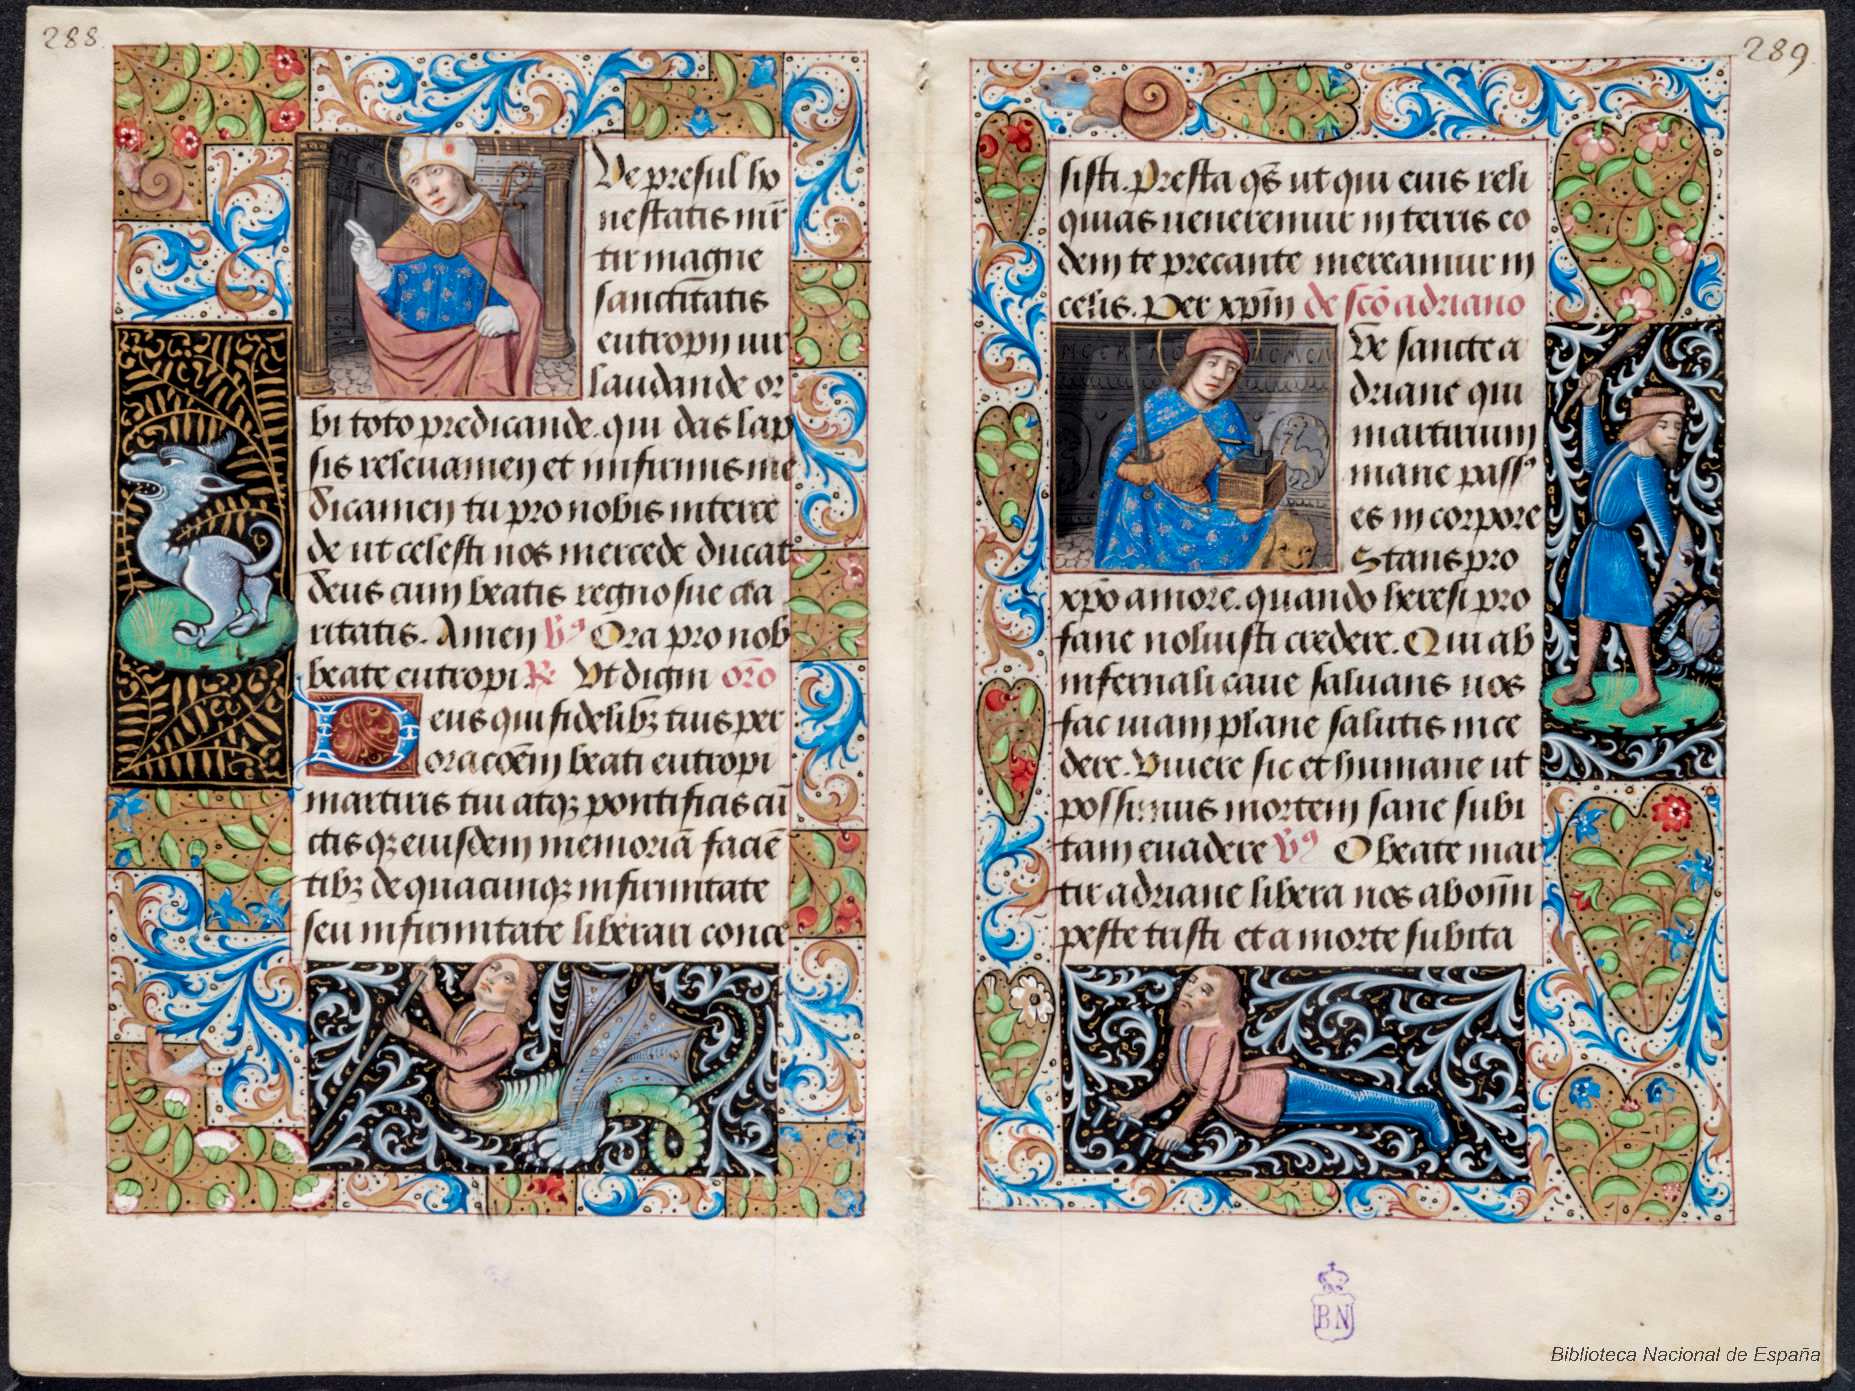 288.
Ve presul ho
nestatis mr̄
tir magne
sanctitatis
eutropii vir
laudande or
bi toto predicande. qui das lap
sis relevamen et infirmis me
dicamen tu pro nobis interce
de ut celesti nos mercede ducat
deus cum beatis regno sue cla
ritatis. Amen ꝟ Ora pro nob
beate eutropi. ℟ Ut digni oro
Deus qui fidelibꝫ tuis per
oracoēm beati eutropi
martiris tui atqꝫ pontificis cū
ctisqꝫ eiusdem memoriā faciē
tibꝫ de quacunqꝫ infirmitate
seu infirmitate liberari conce
289.
sisti. Presta qs̄ ut qui eius reli
quias ueneremur in terris eo
dem te precante mereamur in
celis. Per xpm̄ de scō adriano
Ve sancte a
driane qui
martirium
mane pass⁹
es in corpore
Stans pro
xpō amore. quando heresi pro
fane noluisti credere. Qui ab
infernali caue saluans nos
fac uiam plane salutis ince
dere. Viuere sic et humane ut
possimus mortem sane subi
tam euadere ꝟ O beate mar
tir adriane libera nos ab om̄i
peste tristi et a morte subita
BN
Biblioteca Nacional de España